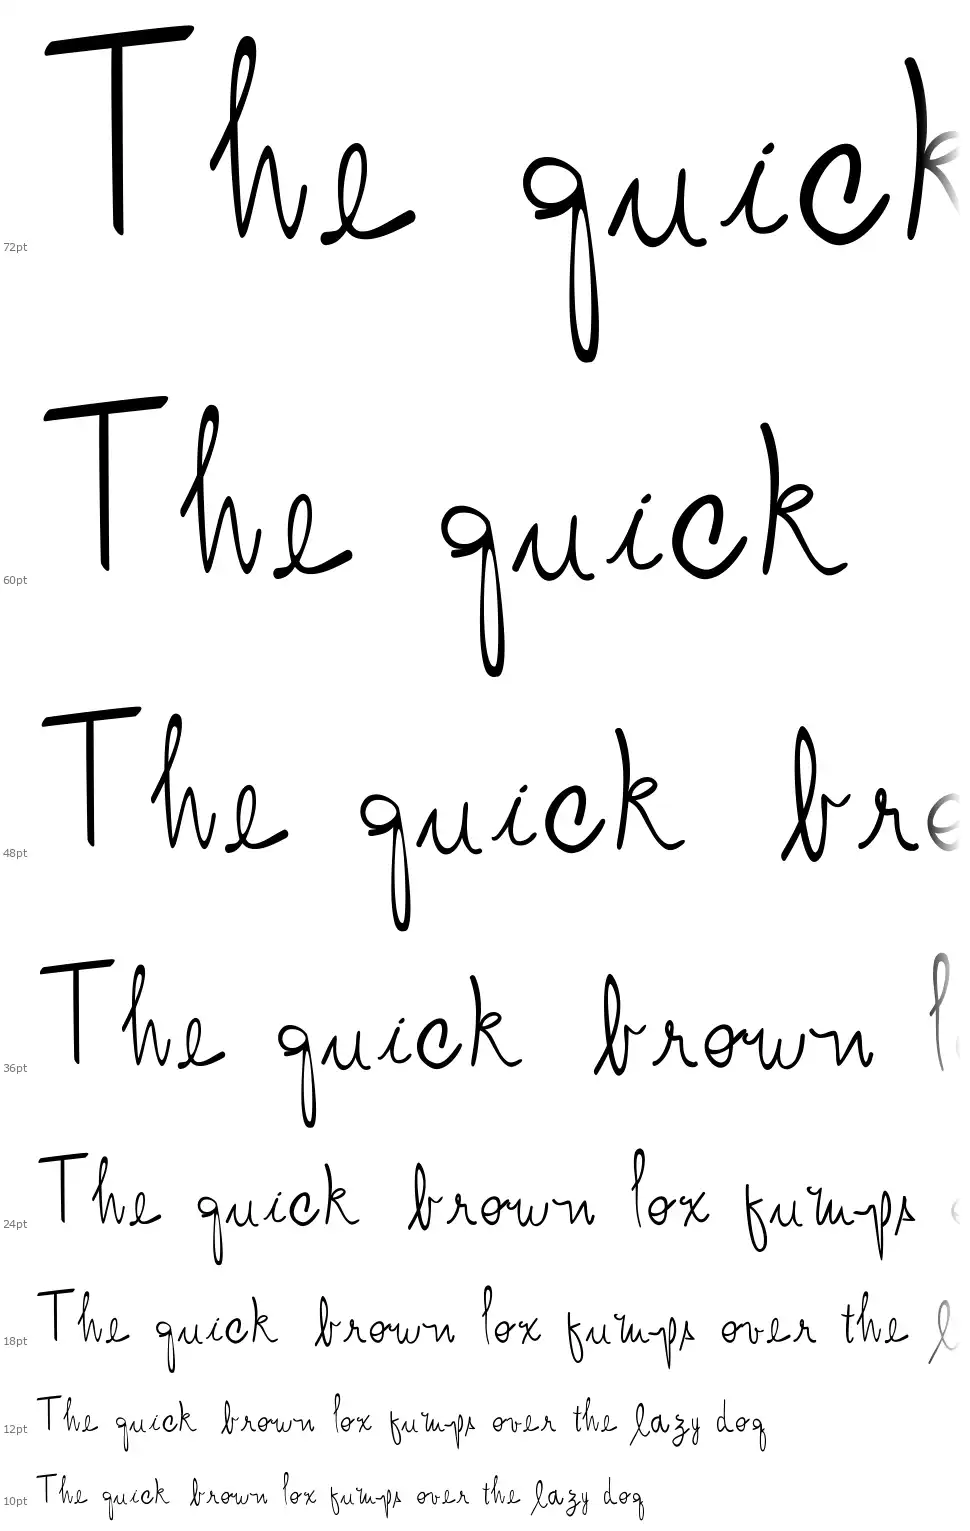 The quick
72pt
The quick
60pt
The quick bro
48pt
The quick brown
36pt
The quick brown fox jumps
24pt
The quick brown fox jumps over the
18pt
The quick brown fox jumps over the lazy dog
12pt
The quick brown fox jumps over the lazy dog
10pt